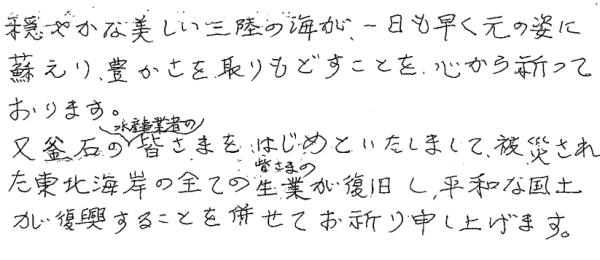 穏やかな美しい三陸の海が、一日も早く元の姿に
蘇えり、豊かさを取りもどすことを、心から祈って
おります。
水産業者の
又釜石の皆さまを、はじめといたしまして、被災され
皆さまの
た東北海岸の全ての生業が復旧し、平和な国土
が復興することを併せてお祈り申し上げます。